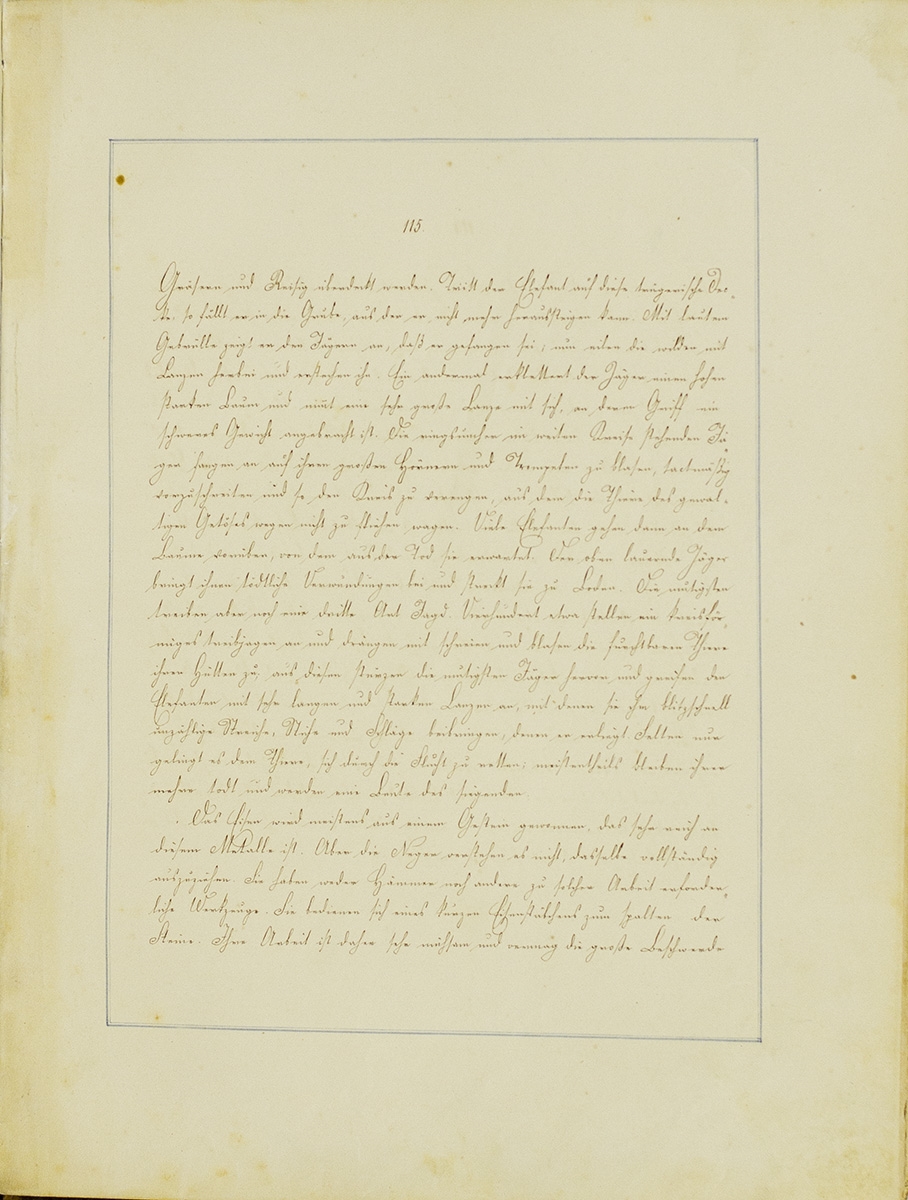 115.
Gräsern und Reisig überdeckt werden. Tritt der Elefant auf diese trügerische Dec-
ke, so fällt er in die Grube, aus der er nicht mehr heraussteigen kann. Mit lautem
Gebrülle zeigt er den Jägern an, daß er gefangen sei; nun eilen die wilden mit
Lanzen herbei und erstechen ihn. Ein andermal erklettert der Jäger einen hohen
starken Baum und nimt eine sehr große Lanze mit sich, an deren Griff ein
schweres Gewicht angebracht ist. Die ringsumher im weiten Kreise stehenden Jä-
ger fangen an auf ihren großen Hörnern und Trompeten zu blasen, tactmäßig
vorzuschreiten und so den Kreis zu verengen, aus dem die Thiere des gewal-
tigen Getöses wegen nicht zu fliehen wagen. Viele Elefanten gehen dann an dem
Baume vorüber, von dem aus der Tod sie erwartet. Der oben lauernde Jäger
bringt ihnen tödtliche Verwundungen bei und streckt sie zu Boden. Die mutigsten
treiben aber noch eine dritte Art Jagd. Vierhundert etwa stellen ein kreisför-
miges treibjagen an und drängen mit schreien und blasen die furchtbaren Thiere
ihren Hütten zu, aus diesen stürzen die mutigsten Jäger hervor und greifen den
Elefanten mit sehr langen und starken Lanzen an, mit denen sie ihm blitzschnell
unzählige Streiche, Stiche und Schläge beibringen, denen er erliegt. Selten nur
gelingt es dem Thiere, sich durch die Flucht zu retten; meistentheils bleiben ihrer
mehrere todt und werden eine Beute des siegenden.
Das Eisen wird meistens aus einem Gestein gewonnen, das sehr reich an
diesem Metalle ist. Aber die Neger verstehen es nicht, dasselbe vollständig
auszuziehen. Sie haben weder Hämmer noch andere zu solcher Arbeit erforder-
liche Werkzeuge. Sie bedienen sich eines kurzen Eisenstäbchens zum spalten der
Steine. Ihre Arbeit ist daher sehr mühsam und vermag die große Beschwerde